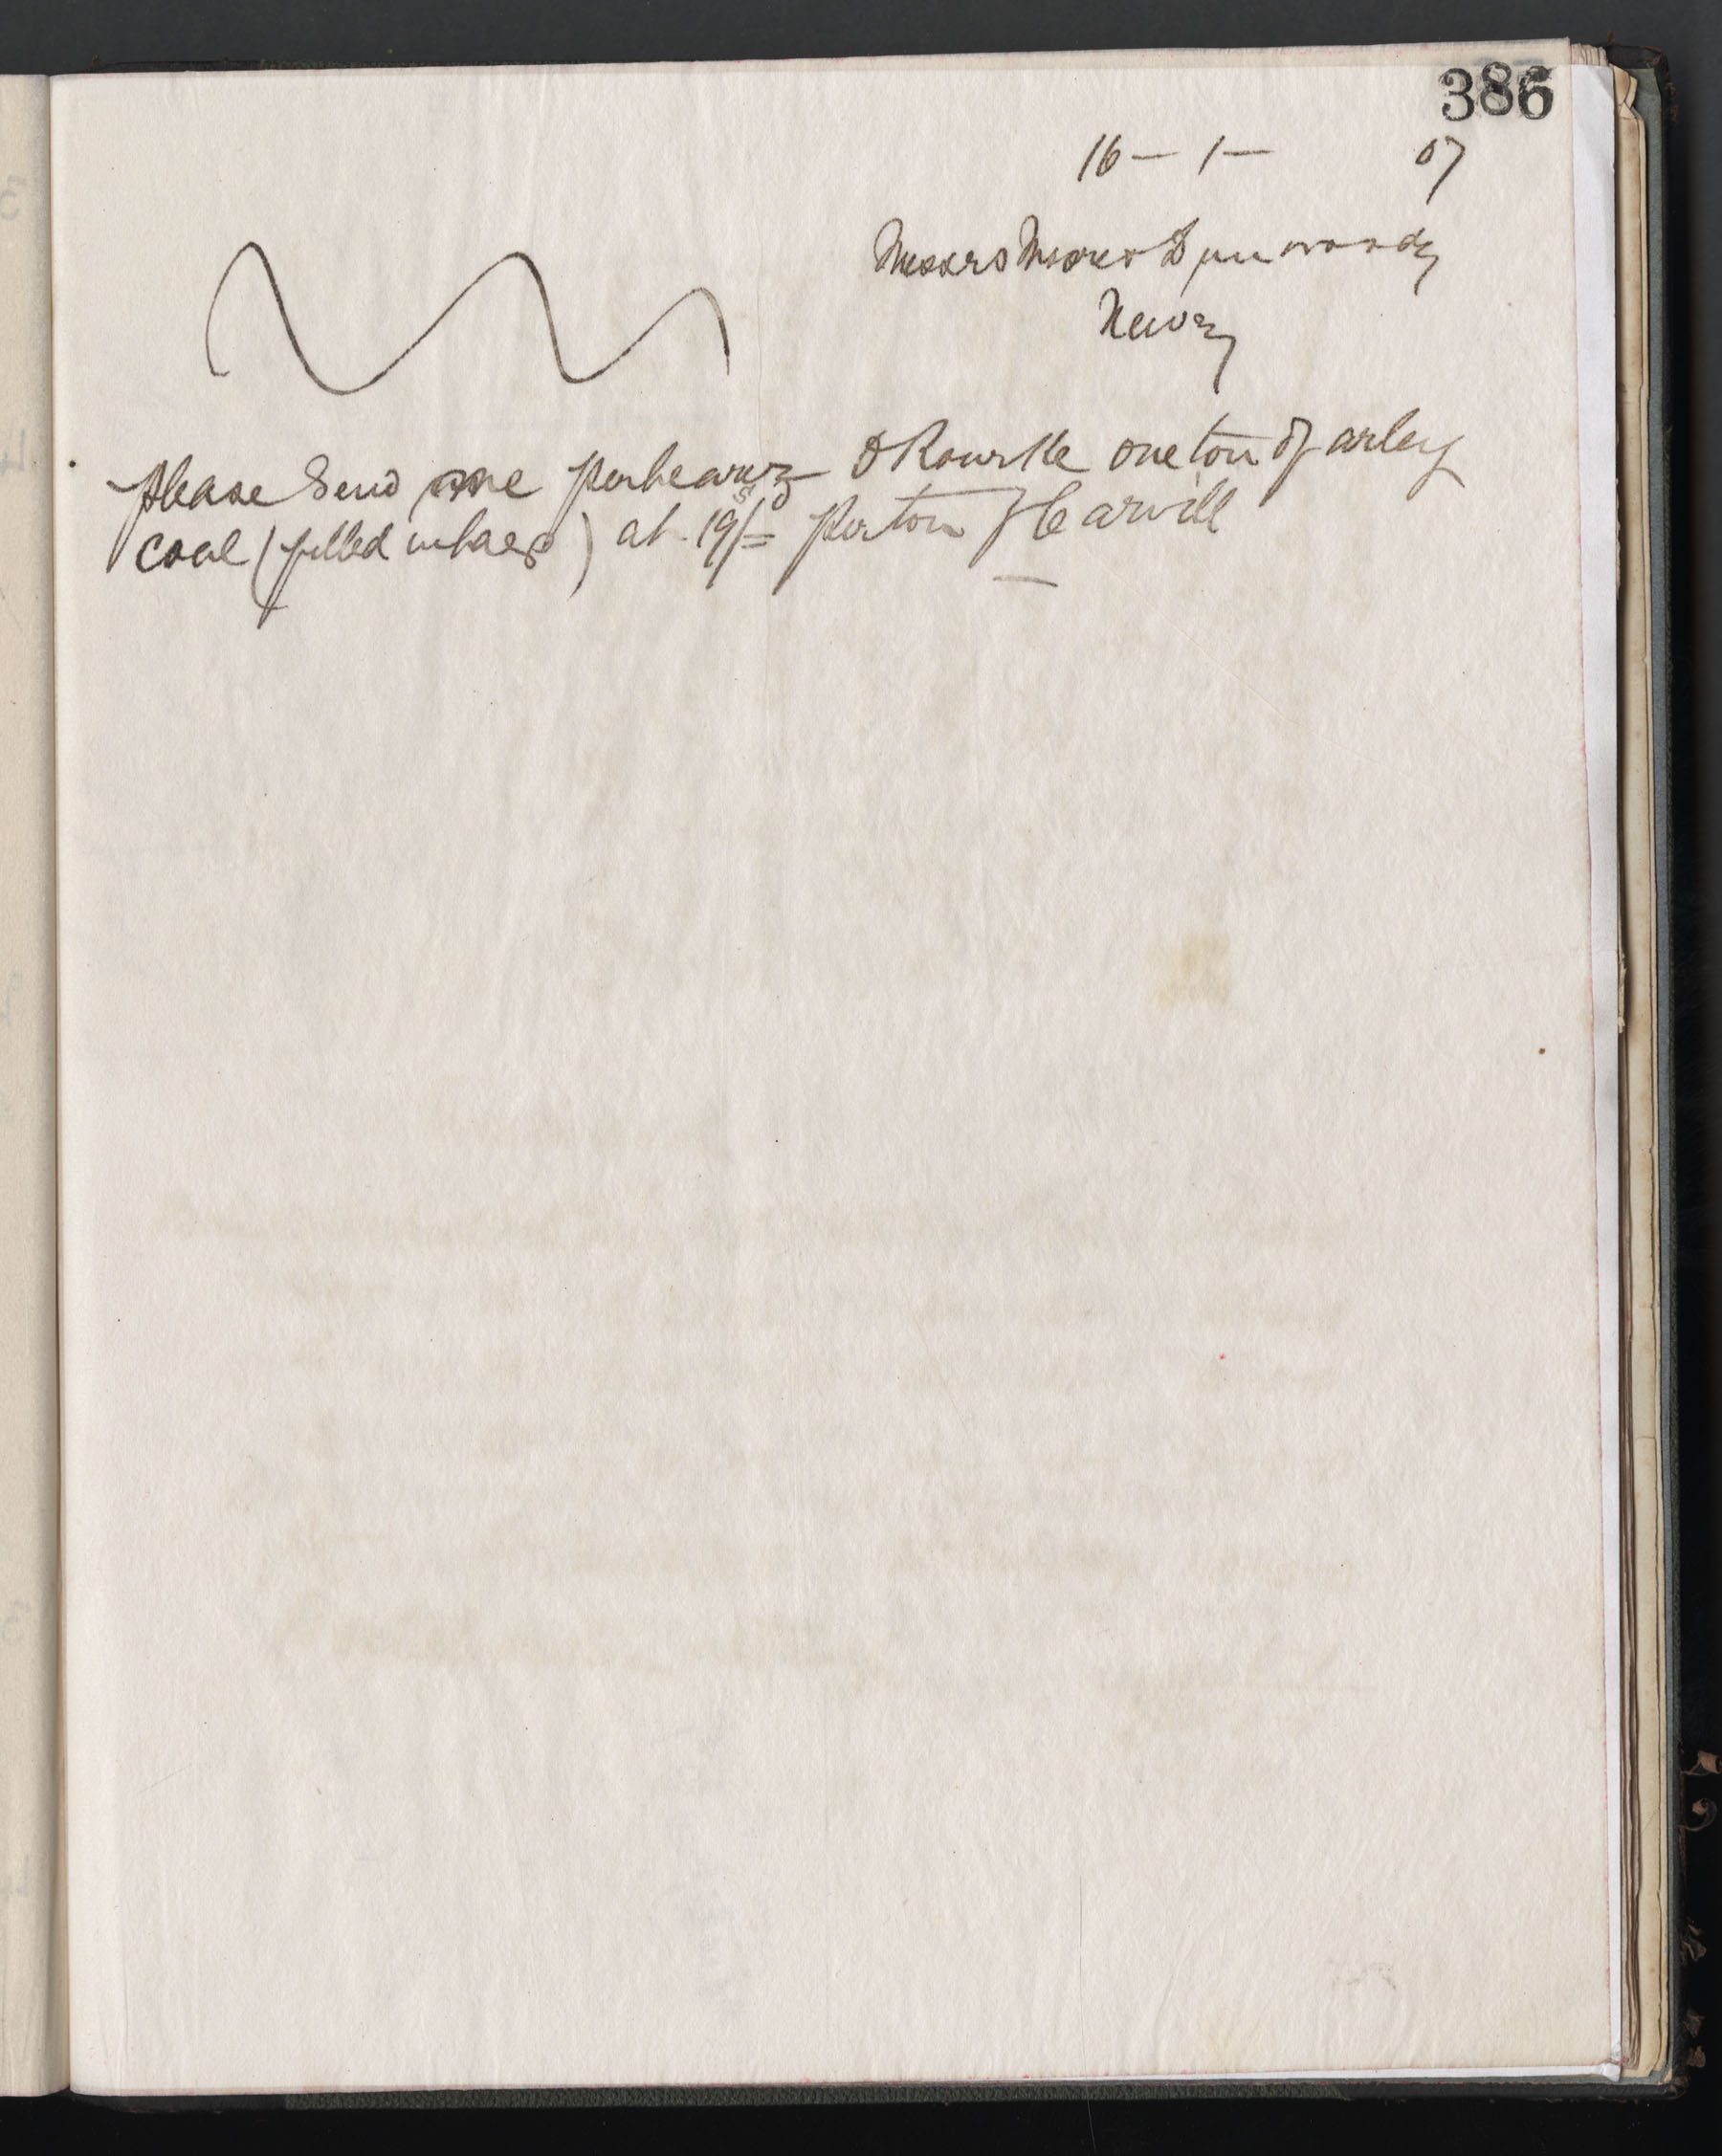 386
16 – 1 – 07
Messrs Moore & Dunwoody
Newry
please Send me per bearer O Rourke one ton of arley
coal (filled in bags) at 19/= per ton F Carvill